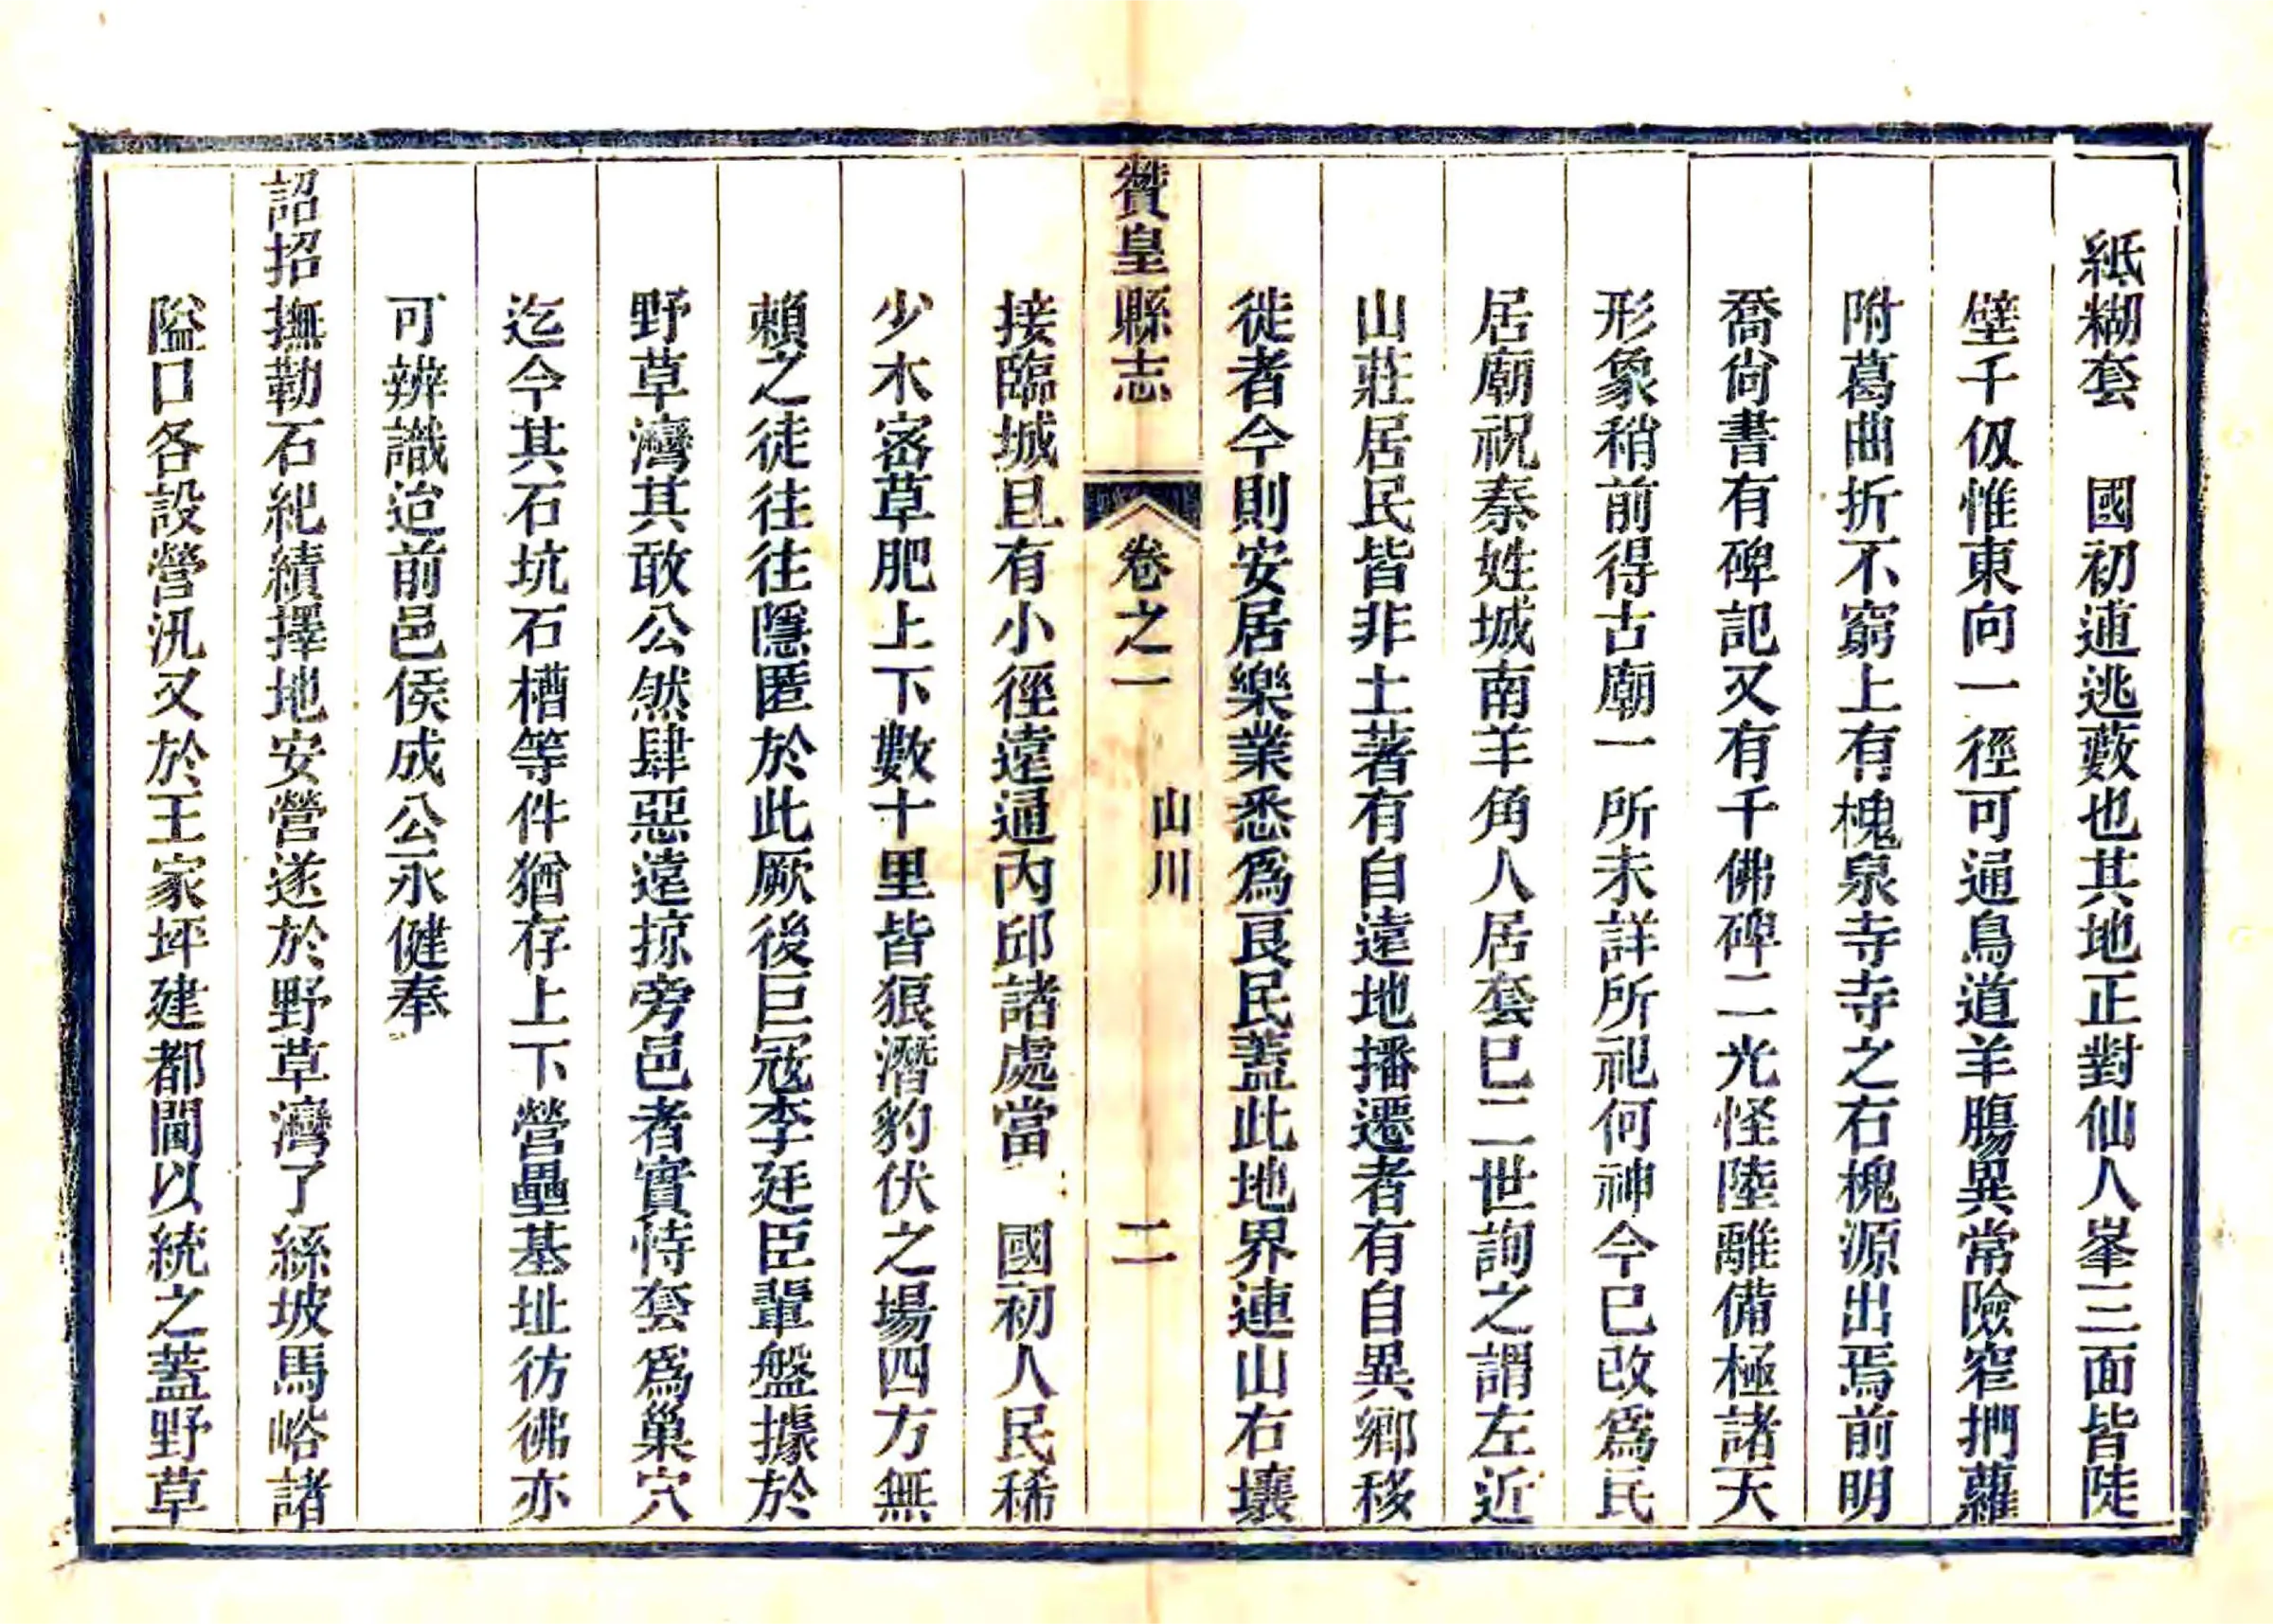 紙糊套　國初逋逃藪也其地正對仙人峯三面皆陡
壁千仭惟東向一徑可通鳥道羊腸異常險窄捫蘿
附葛曲折不窮上有槐泉寺寺之右槐源出焉前明
喬尙書有碑記又有千佛碑二光怪陸離備極諸天
形象稍前得古廟一所未詳所祀何神今已改爲民
居廟祝秦姓城南羊角人居套已二世詢之謂左近
山莊居民皆非土著有自遠地播遷者有自異鄉移
徙者今則安居樂業悉爲良民蓋此地界連山右壤
贊皇縣志　卷之一　山川　二
接臨城且有小徑遠通內邱諸處當　國初人民稀
少木密草肥上下數十里皆狼潛豹伏之場四方無
賴之徒往往隱匿於此厥後巨冦李廷臣輩盤據於
野草灣其敢公然肆惡遠掠旁邑者實恃套爲巢穴
迄今其石坑石槽等件猶存上下營壘基址彷彿亦
可辨識迨前邑侯成公永健奉
詔招撫勒石紀績擇地安營遂於野草灣了絲坡馬峪諸
隘口各設營汛又於王家坪建都閫以統之蓋野草